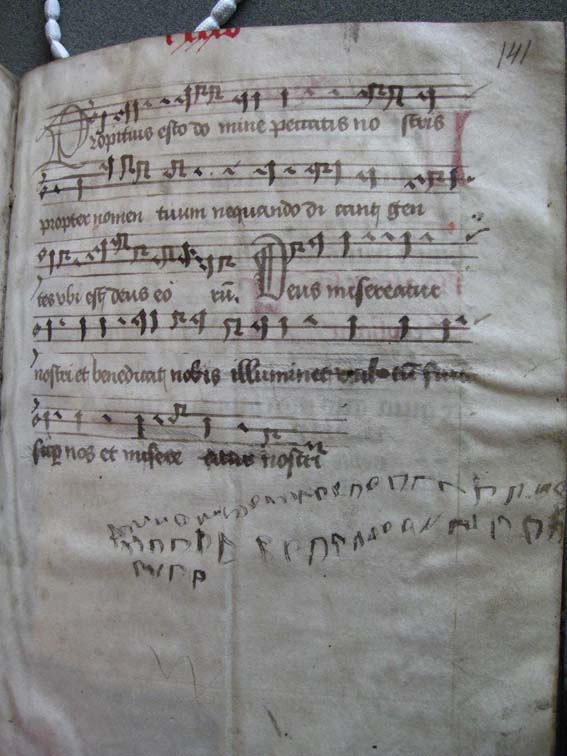 141
Propitius esto do mine peccatis no stris
propter nomen tuum nequando di cant gen
tes ubi est deus eo rū. Deus misereatur
nostri et benedicat nobis illuminet vul tū suū
sup nos et misere atur nostri